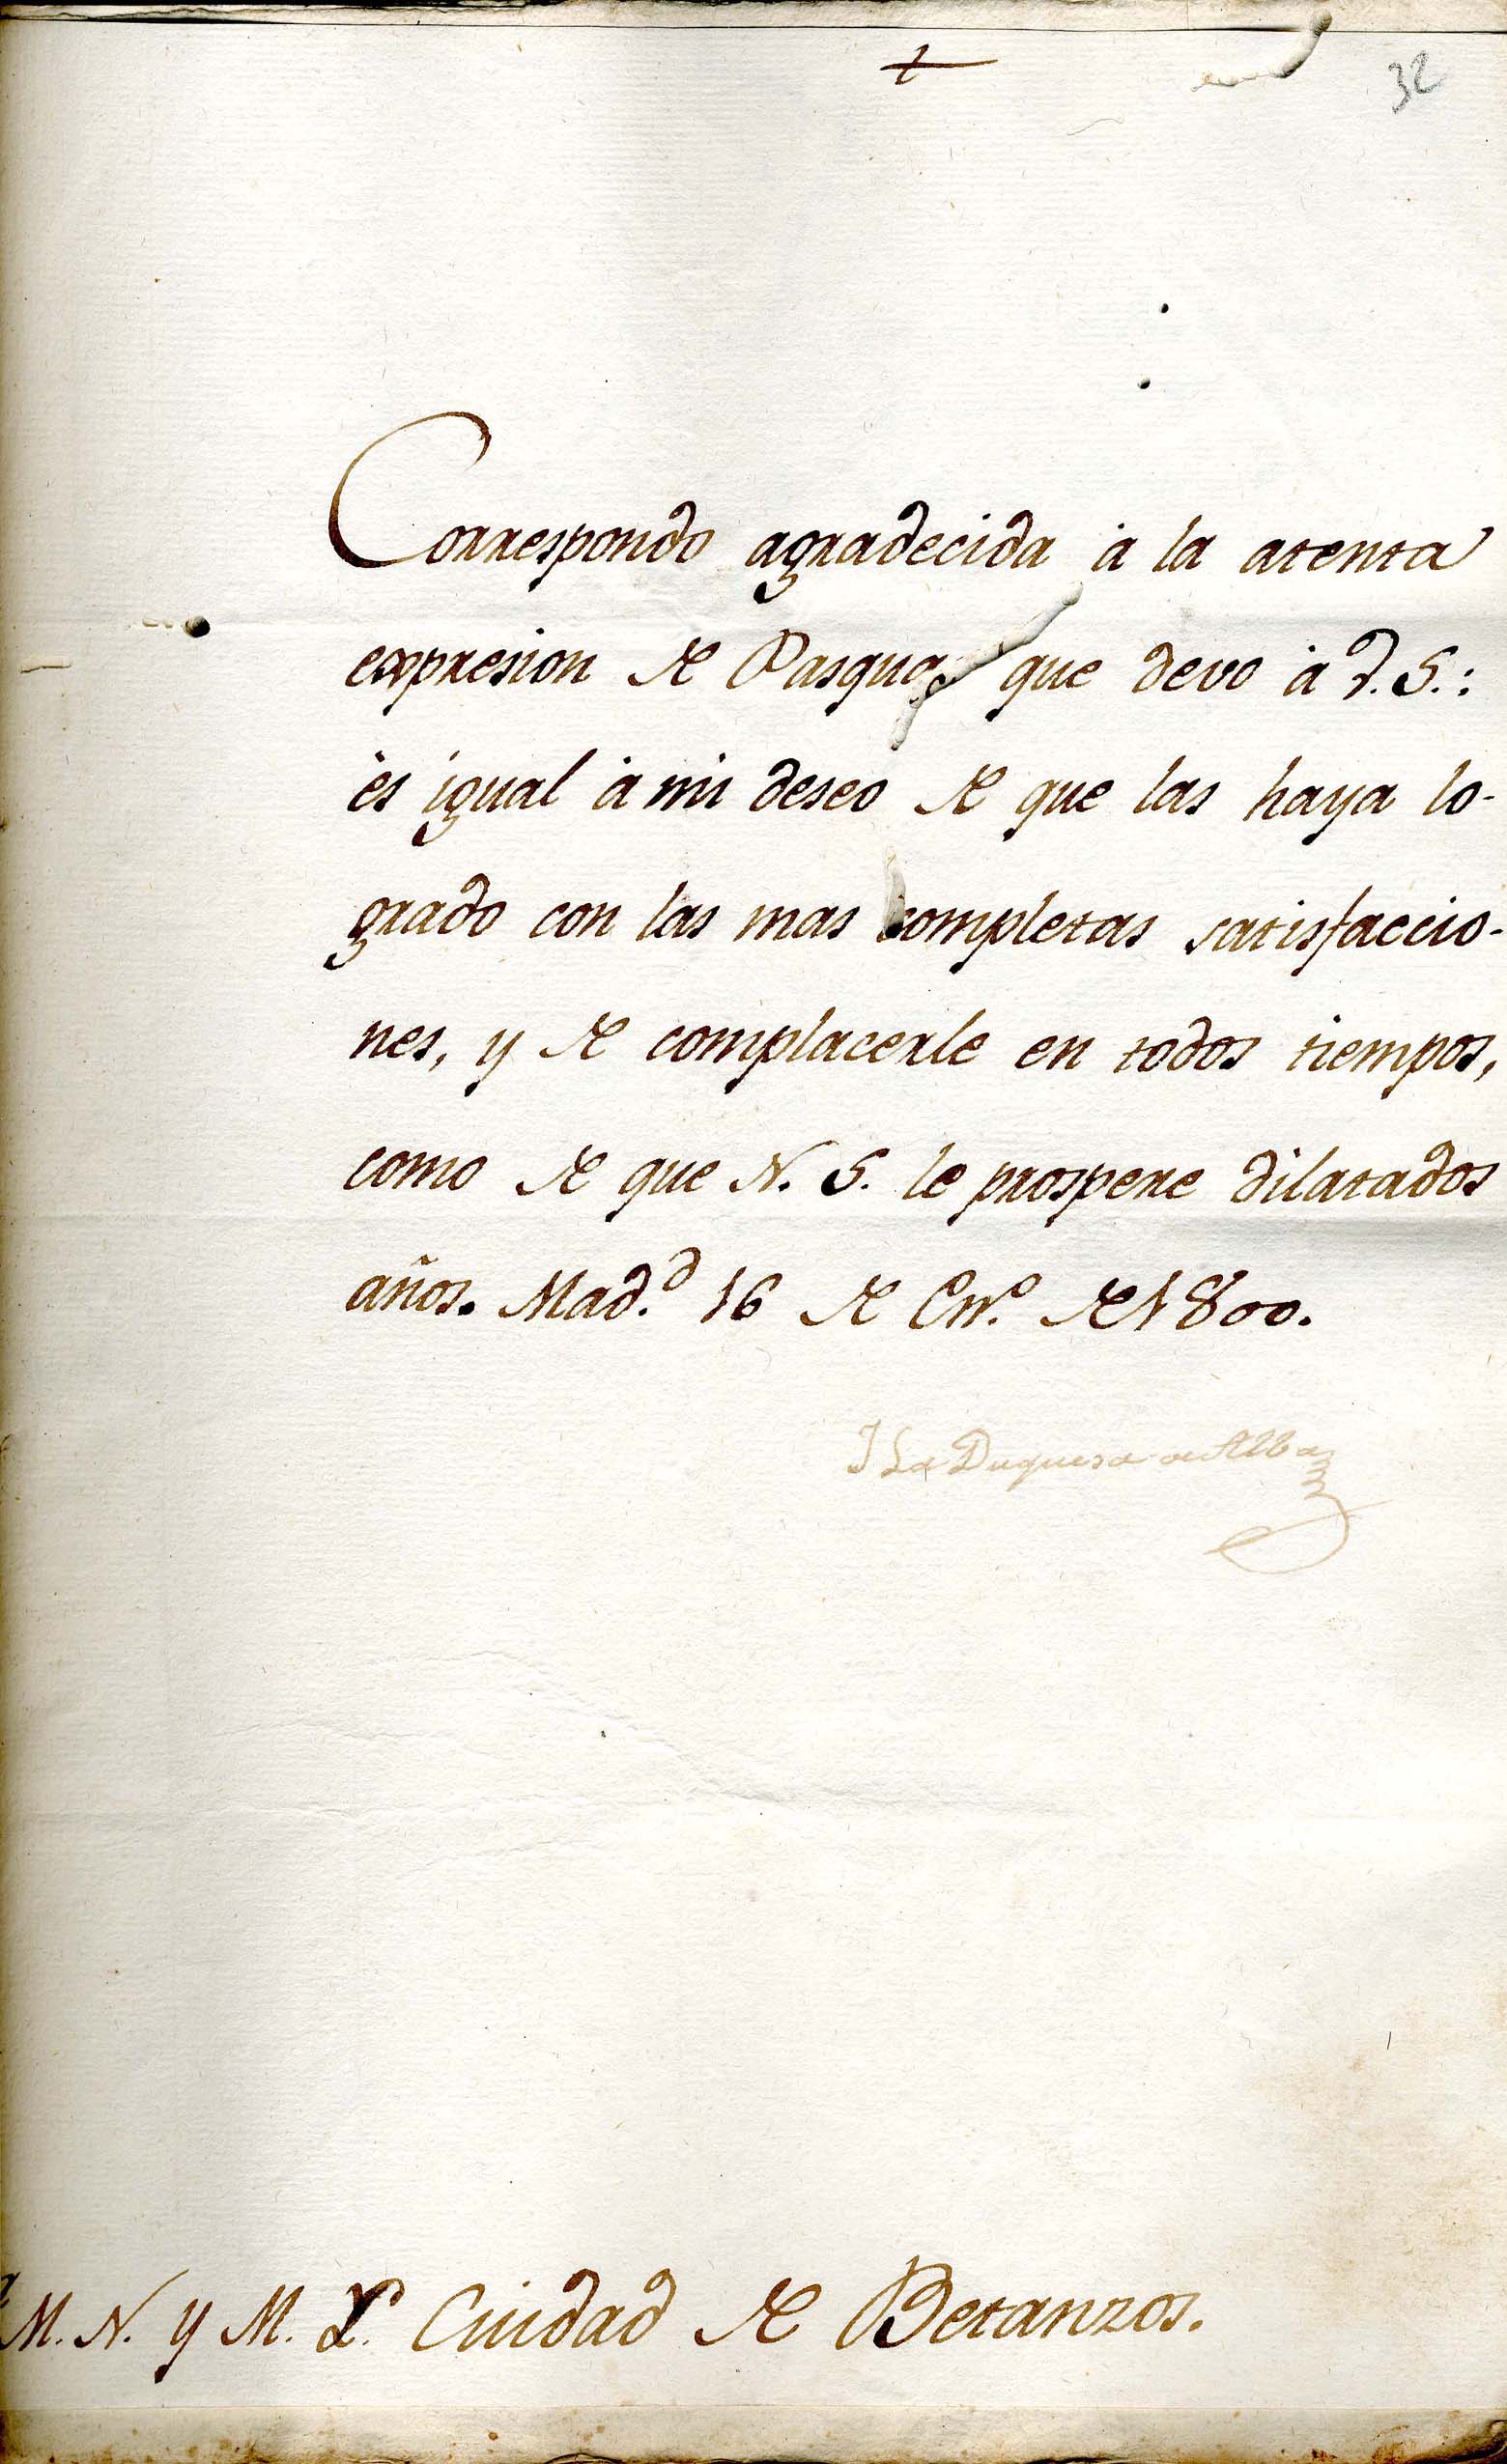 32
Correspondo agradecida à la atenta
expresion de Pasquas que devo à V. S.:
ès igual à mi deseo de que las haya lo-
grado con las mas completas satisfaccio-
nes, y de complacerle en todos tiempos,
como de que N. S. le prospere dilatados
años. Mad.d 16 de En.o de 1800.
La Duquesa de Alba
M. N. y M. L. Ciudad de Betanzos.